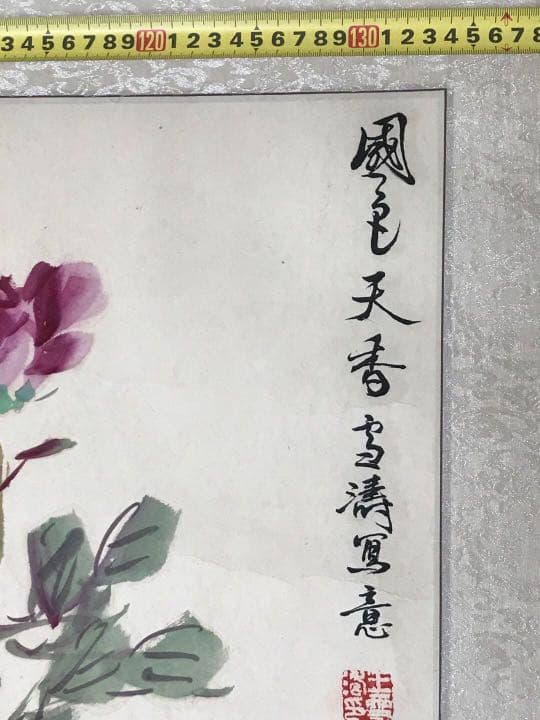 3 4 5 6 7 8 9 120 1 2 3 4 5 6 7 8 9 130 1 2 3 4 5 6 7 8
國色天香雪濤寫意